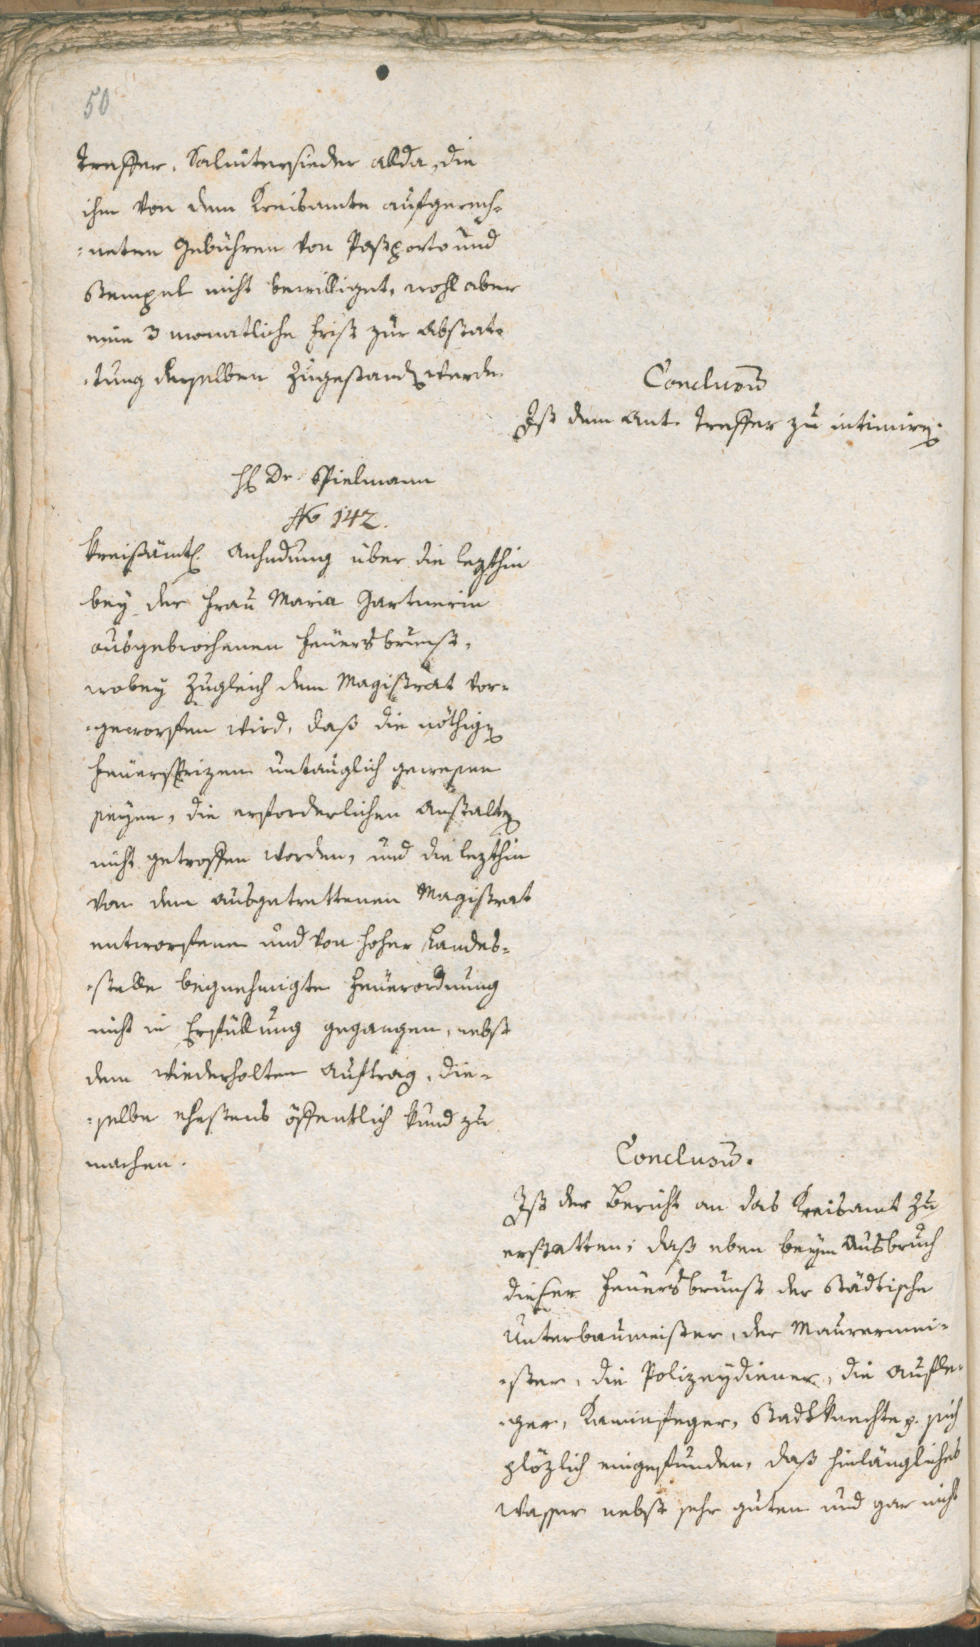 50
Treffer, Saliitersieder allda, die
ihm von dem Kreisamte aufgerech-
-neten Gebühren von Paßporto und
Stempel nicht bewilliget, wohl aber
eine 3 monatliche Frist zur Abstat-
-tung derselben zugestand werde.
Conclusū
Ist dem Ant. Treffer zu intimire.
H Dr. Spielmann
No 142.
Kreisämtl. Anhndung über die lezthin
bey der Frau Maria Gartnerin
ausgebrochenen Feuersbrunst,
wobey zugleich dem Magistrat vor-
-geworfen wird, daß die nöthigen
Feuerspritzen untauglich gewesen
seyen, die erforderlichen Anstalten
nicht getroffen worden, und die lezthin
von dem ausgetrettenen Magistrat
entworfene und von hoher Landes-
-stelle begnehmigte Feuerordnung
nicht in Erfüllung gegangen, nebst
dem wiederholten Auftrag, die-
-selbe ehestens öffentlich kund zu
machen.
Conclusū.
Ist der Bericht an das Kreisamt zu
erstatten; daß eben beym Ausbruch
dieser Feuersbrunst der Städtische
Unterbaumeister, der Maurermei-
-ster, die Polizeydiener, die Aufle-
-ger, Kaminfeger, Stadtknechte p. sich
plözlich eingefunden, daß hinlängliches
Wasser nebst sehr guten und gar nicht